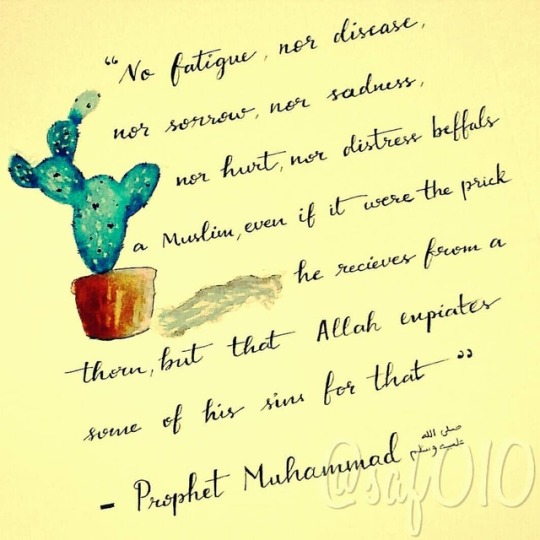 “No fatigue, nor disease,
nor sorrow, nor sadness,
nor hurt, nor distress beffals
a Muslim, even if it were the prick
he recieves from a
thorn, but that Allah expiates
some of his sins for that”
- Prophet Muhammad صلى الله عليه وسلم
@saf010